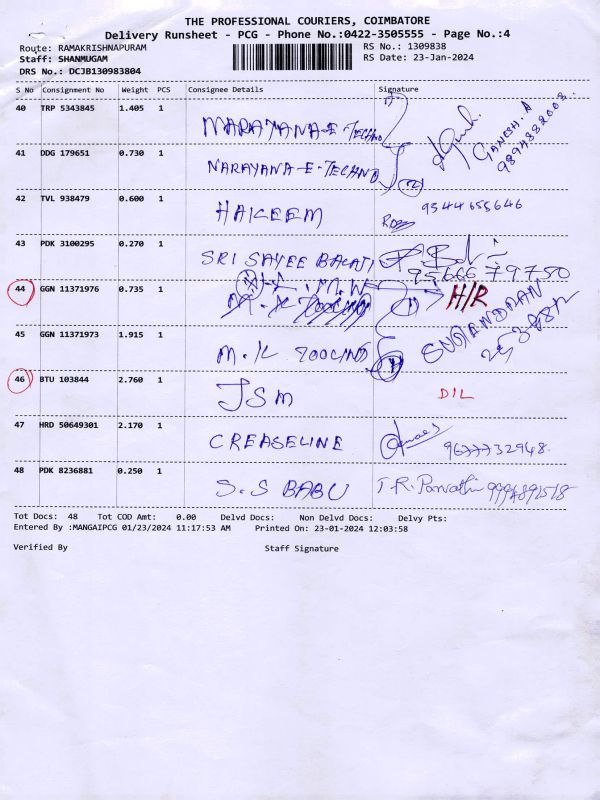 THE PROFESSIONAL COURIERS, COIMBATORE
Delivery Runsheet - PCG - Phone No.:0422-3505555 - Page No.:4
Route: RAMAKRISHNAPURAM RS No.: 1309838
Staff: SHANMUGAM RS Date: 23-Jan-2024
DRS No.: DCJB130983804
S No Consignment No Weight PCS Consignee Details Signature
40 TRP 5343845 1.405 1 NARAYANA-E-TECHNO
GANESH.A
9894382008.
41 DDG 179651 0.730 1 NARAYANA-E-TECHNO
42 TVL 938479 0.600 1 HAKEEM 9544655646
43 PDK 3100295 0.270 1 SRI SAYEE BALAJI
9566679780
44 GGN 11371976 0.735 1 H/R
45 GGN 11371973 1.915 1 M.K.
46 BTU 103844 2.760 1 JSM DIL
47 HRD 50649301 2.170 1 CREASELINE 9677732948.
48 PDK 8236881 0.250 1 S.S BABU T.R.Parvathi
Tot Docs: 48 Tot COD Amt: 0.00 Delvd Docs: Non Delvd Docs: Delvy Pts:
Entered By :MANGAIPCG 01/23/2024 11:17:53 AM Printed On: 23-01-2024 12:03:58
Verified By Staff Signature